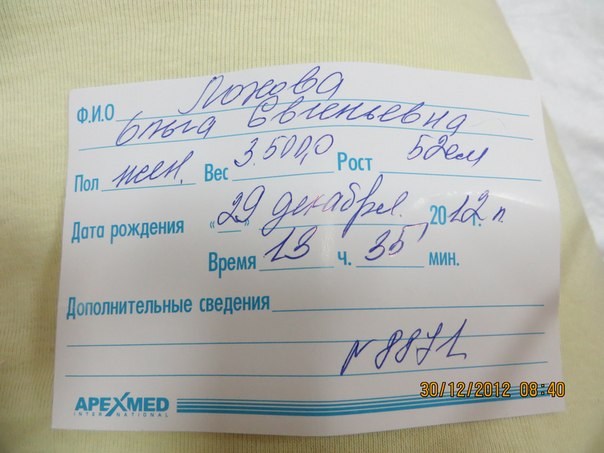 Ф.И.О Попова
Ольга Евгеньевна
Пол жен. Вес 3.500,0 Рост 52см
Дата рождения «29» декабря 2012 г.
Время 13 ч. 35 мин.
Дополнительные сведения
N 8871
APEXMED
INTERNATIONAL
30/12/2012 08:40